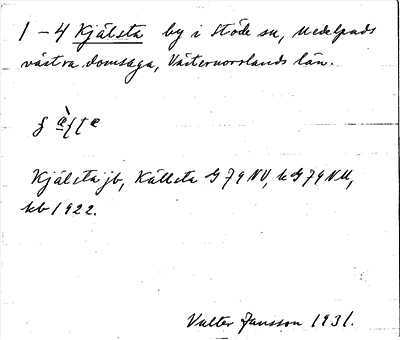 1-4 Kjälsta by i Stöde sn, Medelpads
västra domsaga, Västernorrlands län.
Kjälsta jb, Källsta G 79 NV, k G 79 NU,
kb 1922.
Valter Jansson 1931.